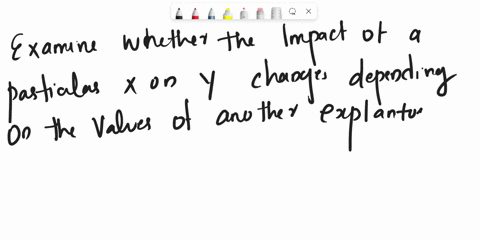 Examine whether the Impact of a
particular x on y changes depending
on the values of another explanto